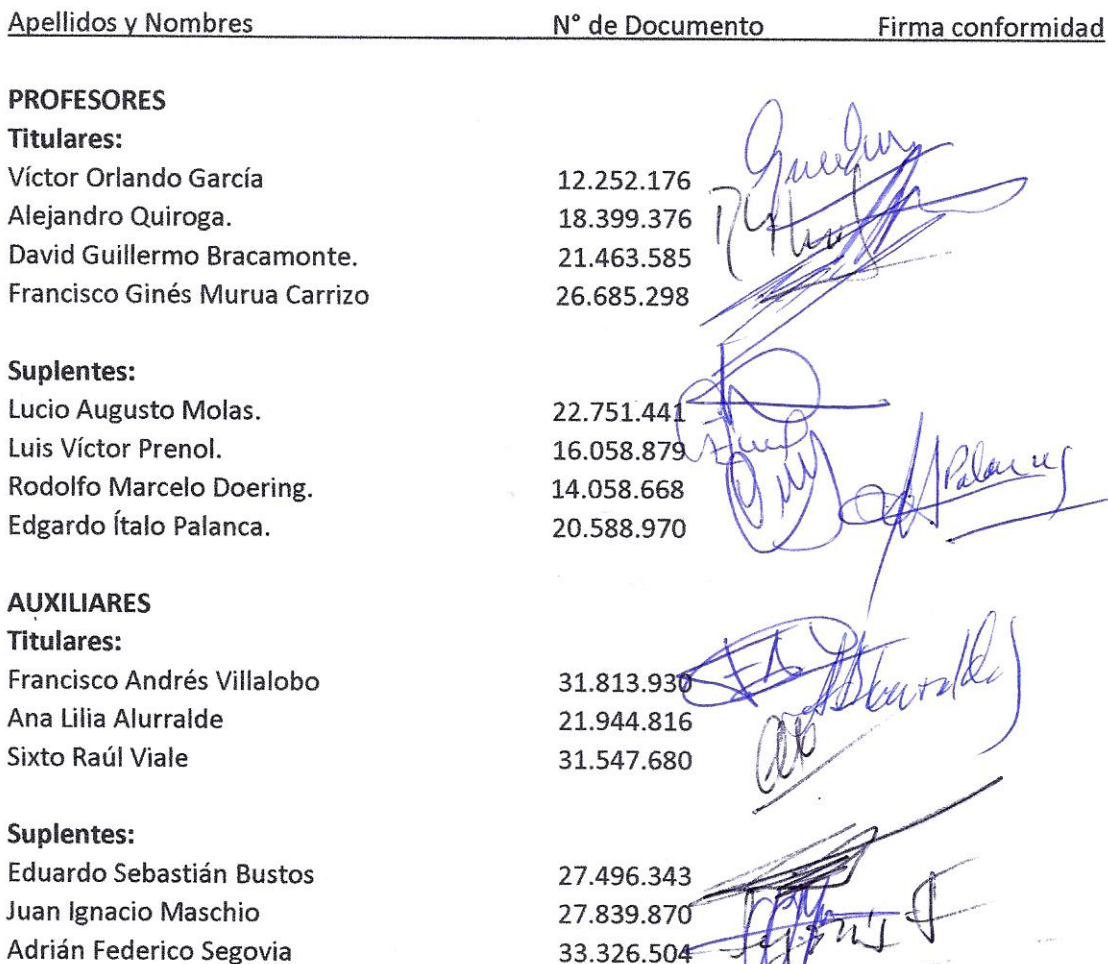 Apellidos y Nombres N° de Documento Firma conformidad
PROFESORES
Titulares:
Víctor Orlando García 12.252.176
Alejandro Quiroga. 18.399.376
David Guillermo Bracamonte. 21.463.585
Francisco Ginés Murua Carrizo 26.685.298
Suplentes:
Lucio Augusto Molas. 22.751.441
Luis Víctor Prenol. 16.058.879
Rodolfo Marcelo Doering. 14.058.668
Edgardo Ítalo Palanca. 20.588.970
AUXILIARES
Titulares:
Francisco Andrés Villalobo 31.813.930
Ana Lilia Alurralde 21.944.816
Sixto Raúl Viale 31.547.680
Suplentes:
Eduardo Sebastián Bustos 27.496.343
Juan Ignacio Maschio 27.839.870
Adrián Federico Segovia 33.326.504